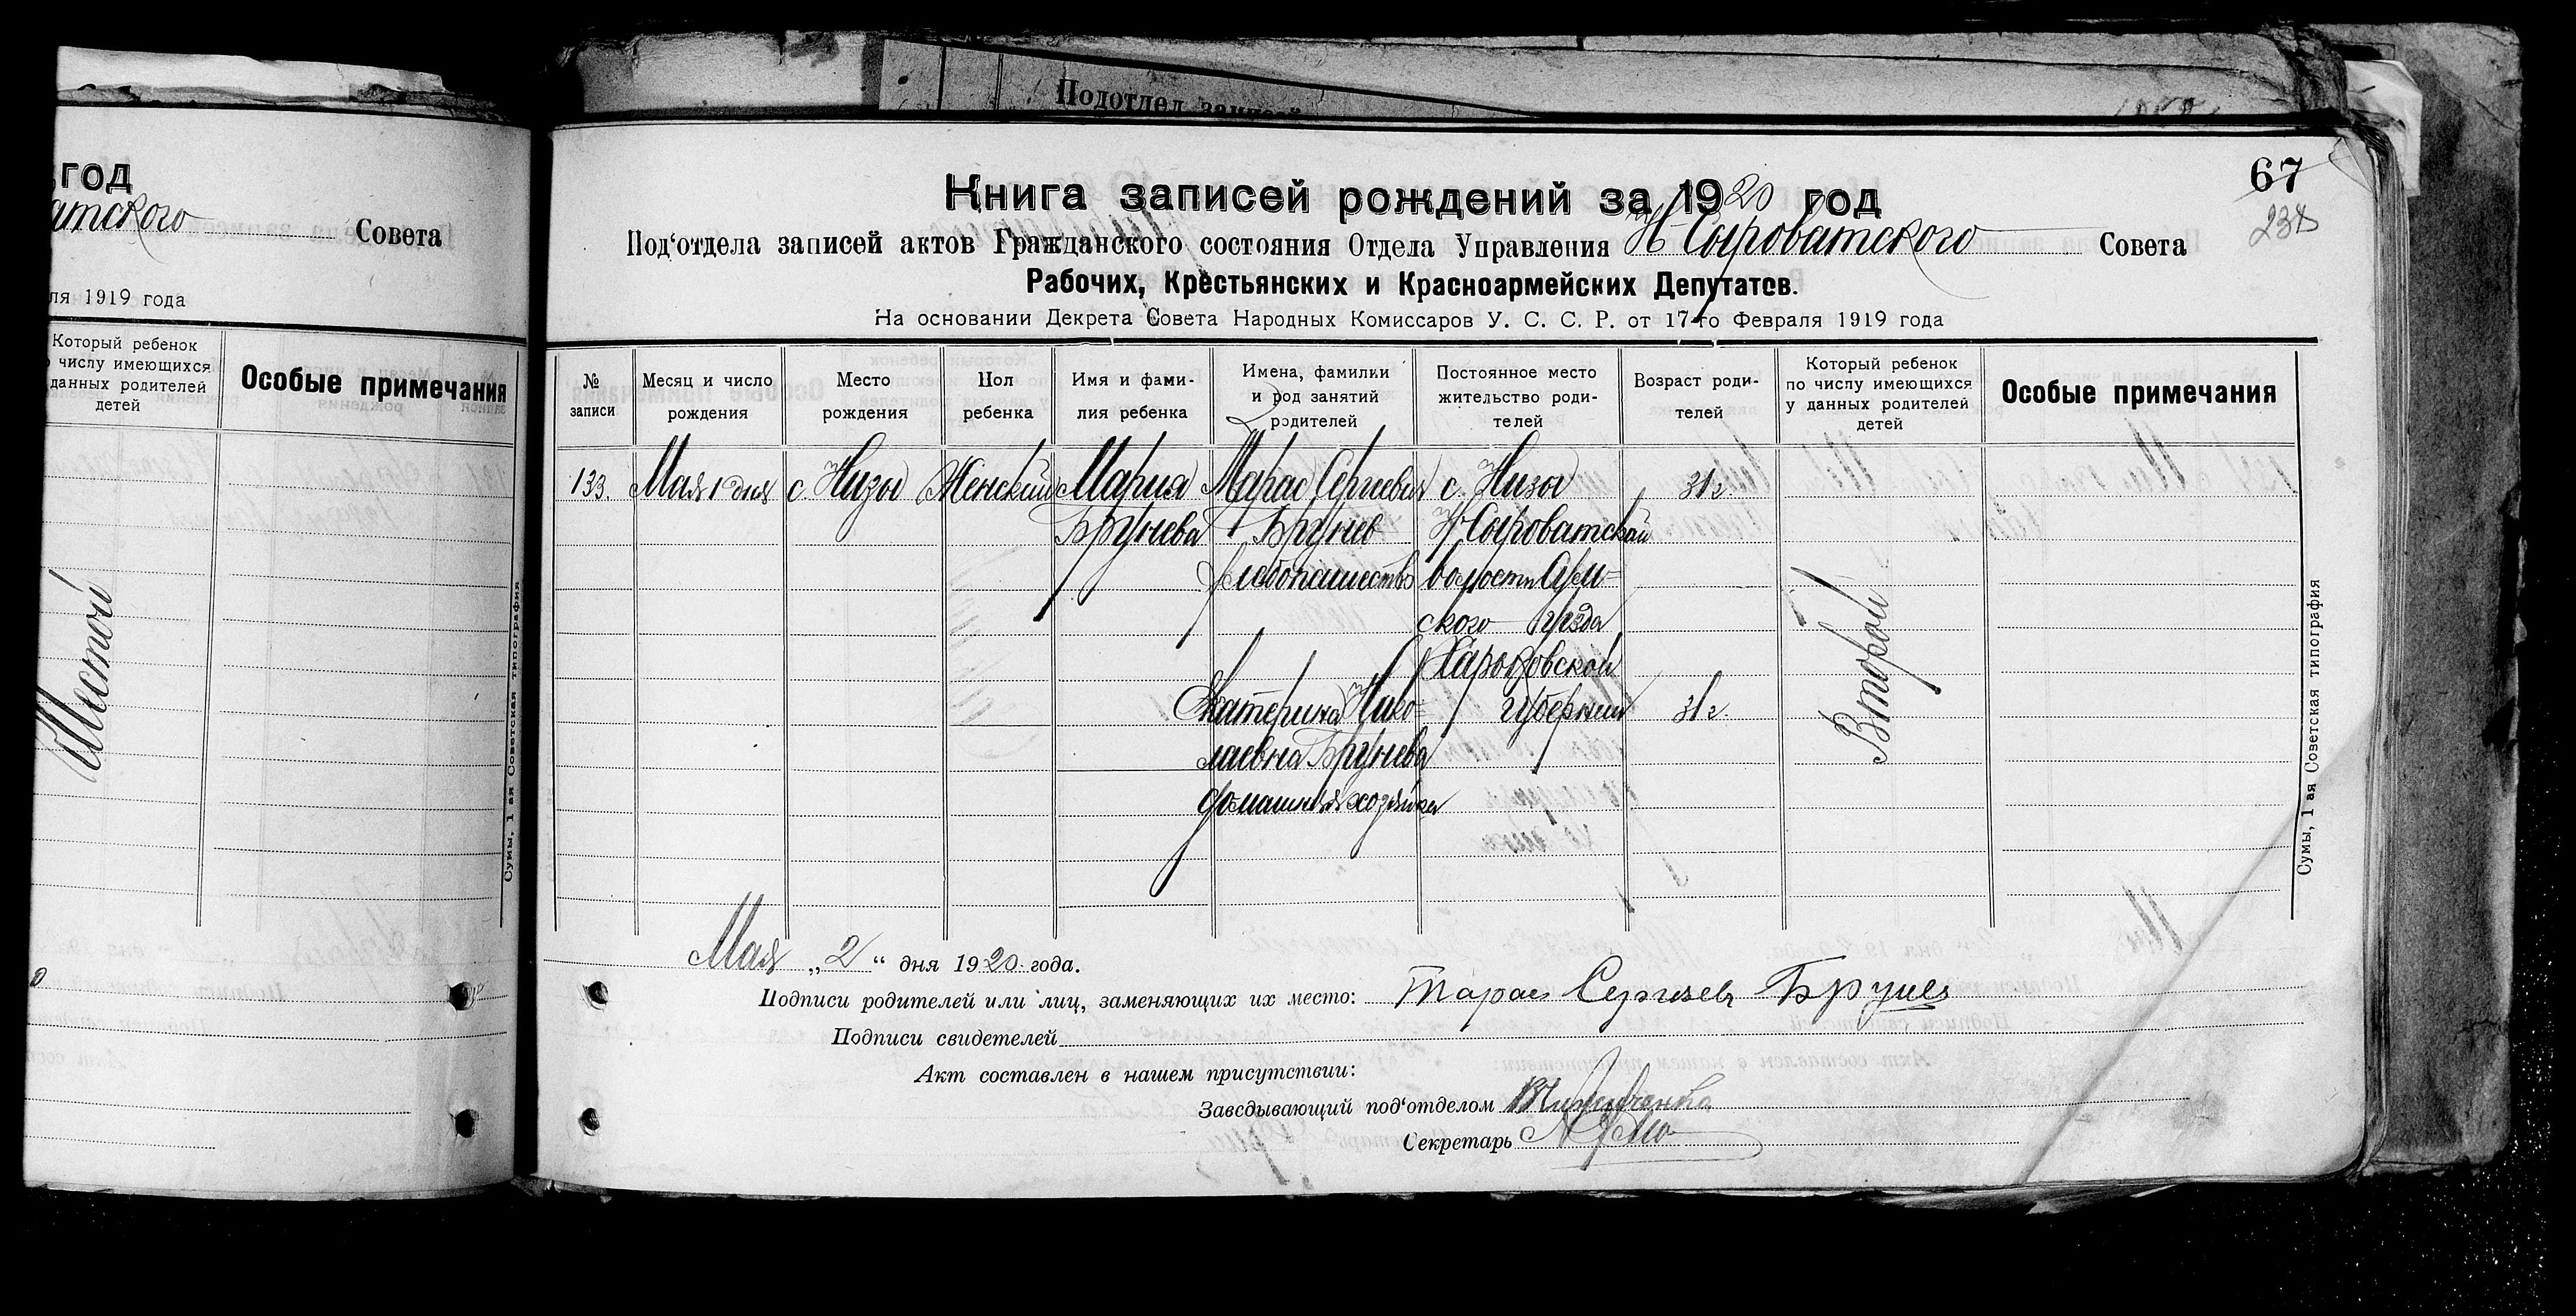 Подотдел
год
атского Совета
ля 1919 года
Который ребенок
числу имеющихся
данных родителей
детей
Особые примечания
Шестой
Сумы, 1 ая Советская типография
67
238
Книга записей рождений за 1920 год
Под‘отдела записей актов Гражданского состояния Отдела Управления Н-Сыроватского Совета
Рабочих, Крестьянских и Красноармейских Депутатов.
На основании Декрета Совета Народных Комиссаров У. С. С. Р. от 17-го Февраля 1919 года
№
записи
Месяц и число
рождения
Место
рождения
Пол
ребенка
Имя и фами-
лия ребенка
Имена, фамилии
и род занятий
родителей
Постоянное место
жительство роди-
телей
Возраст роди-
телей
Который ребенок
по числу имеющихся
у данных родителей
детей
Особые примечания
133.
Мая 1 дня
с. Низы
Женский
Мария
Брунева
Тарас Сергиевич
Брунев
хлебопашество
Екатерина Нико=
лаевна Брунева
домашняя хозяйка
с. Низы
Н-Сыроватской
волости Сум=
ского уезда
Харьковской
губернии
31 г.
31 г.
Второй
Сумы, 1 ая Советская типография
Мая „2“ дня 1920 года.
Подписи родителей или лиц, заменяющих их место: Тарас Сергеев Брунев
Подписи свидетелей
Акт составлен в нашем присутствии:
Заведывающий под‘отделом
Секретарь